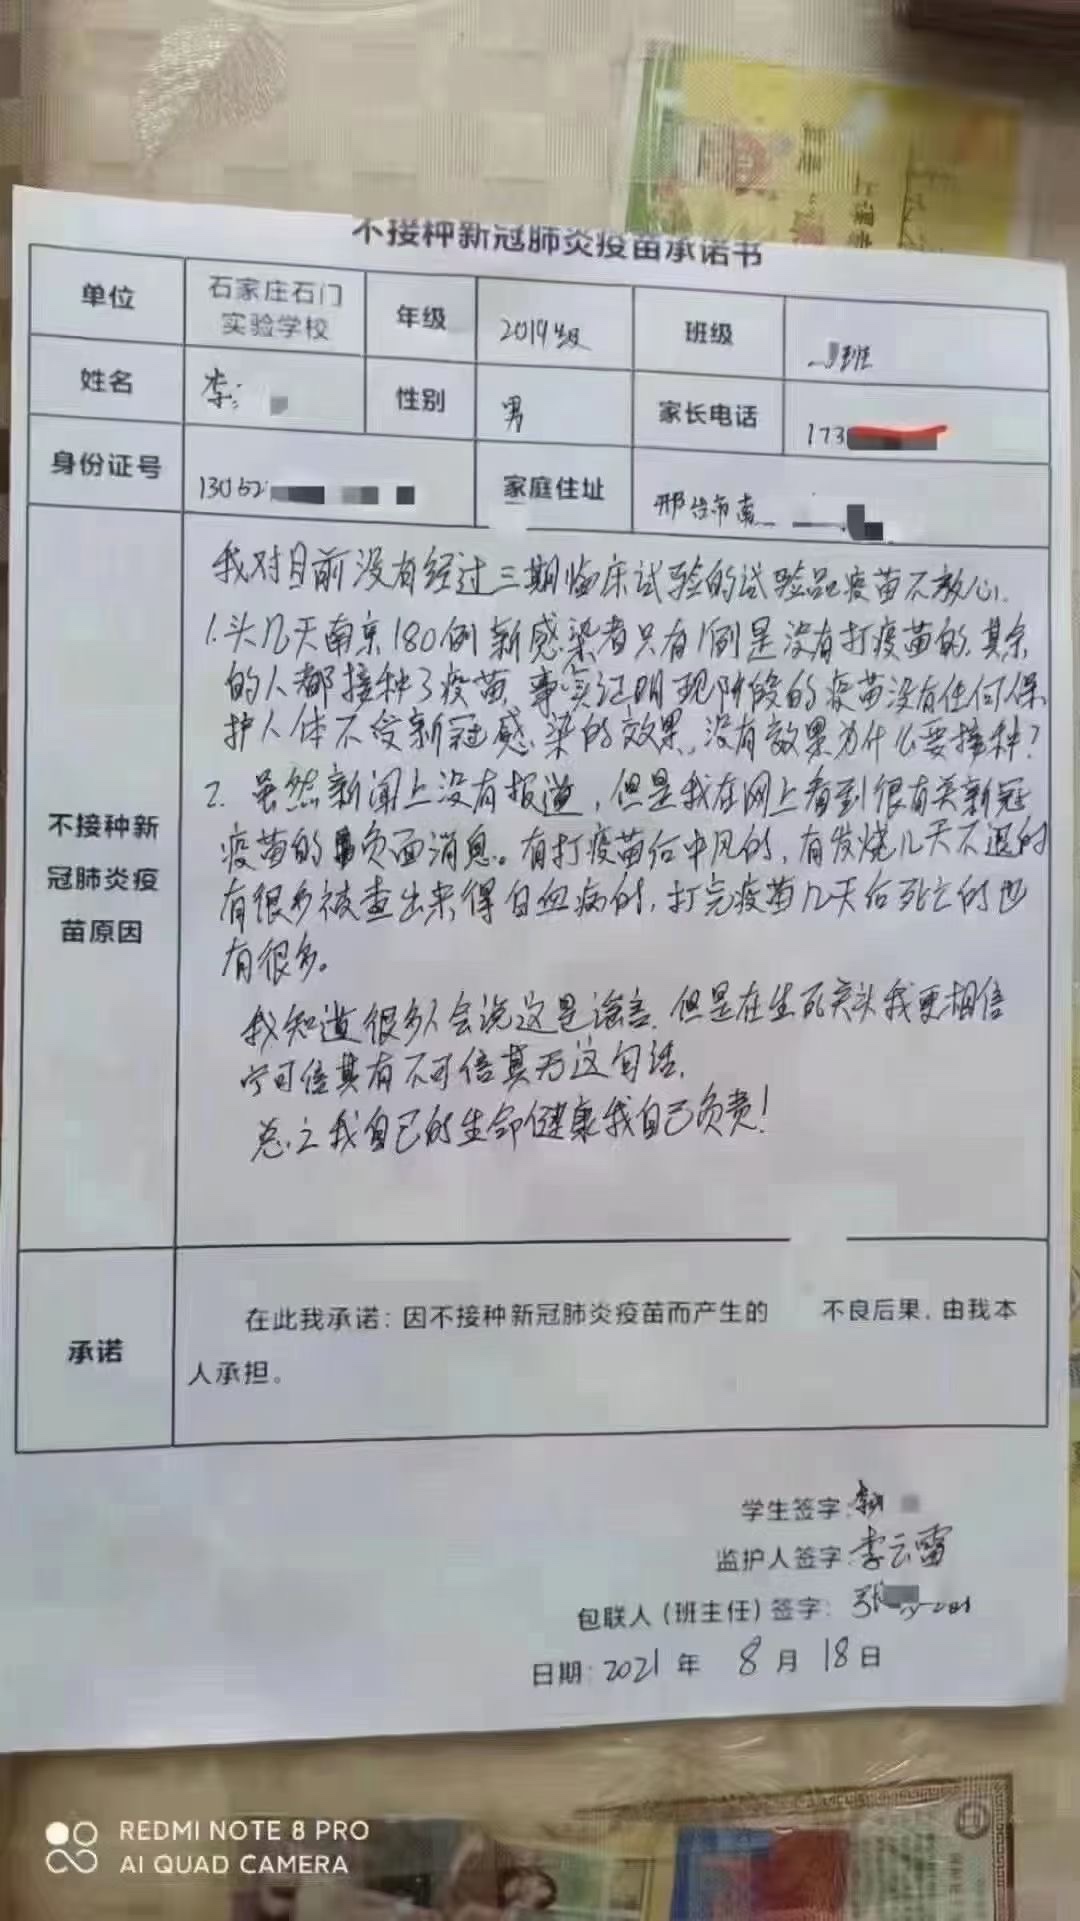 不接种新冠肺炎疫苗承诺书
单位 石家庄石门实验学校 年级 2019级 班级 班
姓名 李 性别 男 家长电话 173
身份证号 13052 家庭住址 邢台市南
不接种新冠肺炎疫苗原因
我对目前没有经过三期临床试验的试验品疫苗不放心.
1.头几天南京180例新感染者只有1例是没有打疫苗的,其余
的人都接种了疫苗,事实证明现阶段的疫苗没有任何保
护人体不受新冠感染的效果,没有效果为什么要接种?
2.虽然新闻上没有报道,但是我在网上看到很有关新冠
疫苗的负面消息。有打疫苗后中风的,有发烧几天不退的
有很多被查出来得白血病的,打完疫苗几天后死亡的也
有很多。
我知道很多人会说这是谣言,但是在生死关头我更相信
宁可信其有不可信其无这句话,
总之我自己的生命健康我自己负责!
承诺
在此我承诺:因不接种新冠肺炎疫苗而产生的 不良后果,由我本
人承担。
学生签字:李
监护人签字:李云雷
包联人(班主任)签字:张
日期:2021年 8月18日
REDMI NOTE 8 PRO
AI QUAD CAMERA